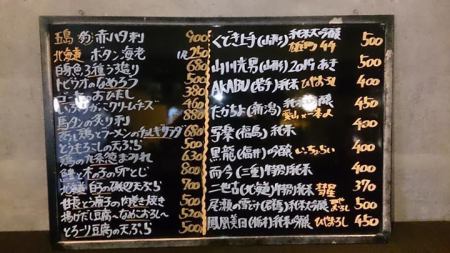 五島 釣 赤ハタ刺 900
北海道 ボタン海老 1尾 250
白身魚3種盛り 680
トビウオのなめろう 500
おひたし 380
クリームチーズ 460
馬タンの炙り刺 880
蒸し鶏とラーメンのチョレギサラダ 680
とうもろこしの天ぷら 500
鶏の九条葱まみれ 630
鰻と木の子の卵とじ 800
北海道 白子の磯辺天ぷら 700
甘長と茄子の肉巻き 500
揚げだし豆腐〜なめこおろし〜 520
とろーり豆腐の天ぷら 500
くどき上手(山形)純米大吟醸 雄町44 500
山川光男(山形)2019 あき 500
AKABU(岩手)純米 ひやおろし 400
たかちよ(新潟) 450
写楽(福島)純米 400
黒龍(福井)吟醸 いっちょらい 400
而今(三重)特別純米 400
二世古(北海道)特別純米 彗星 370
尾瀬の雪どけ(群馬)純米大吟醸 500
鳳凰美田(栃木)純米吟醸 ひやおろし 450